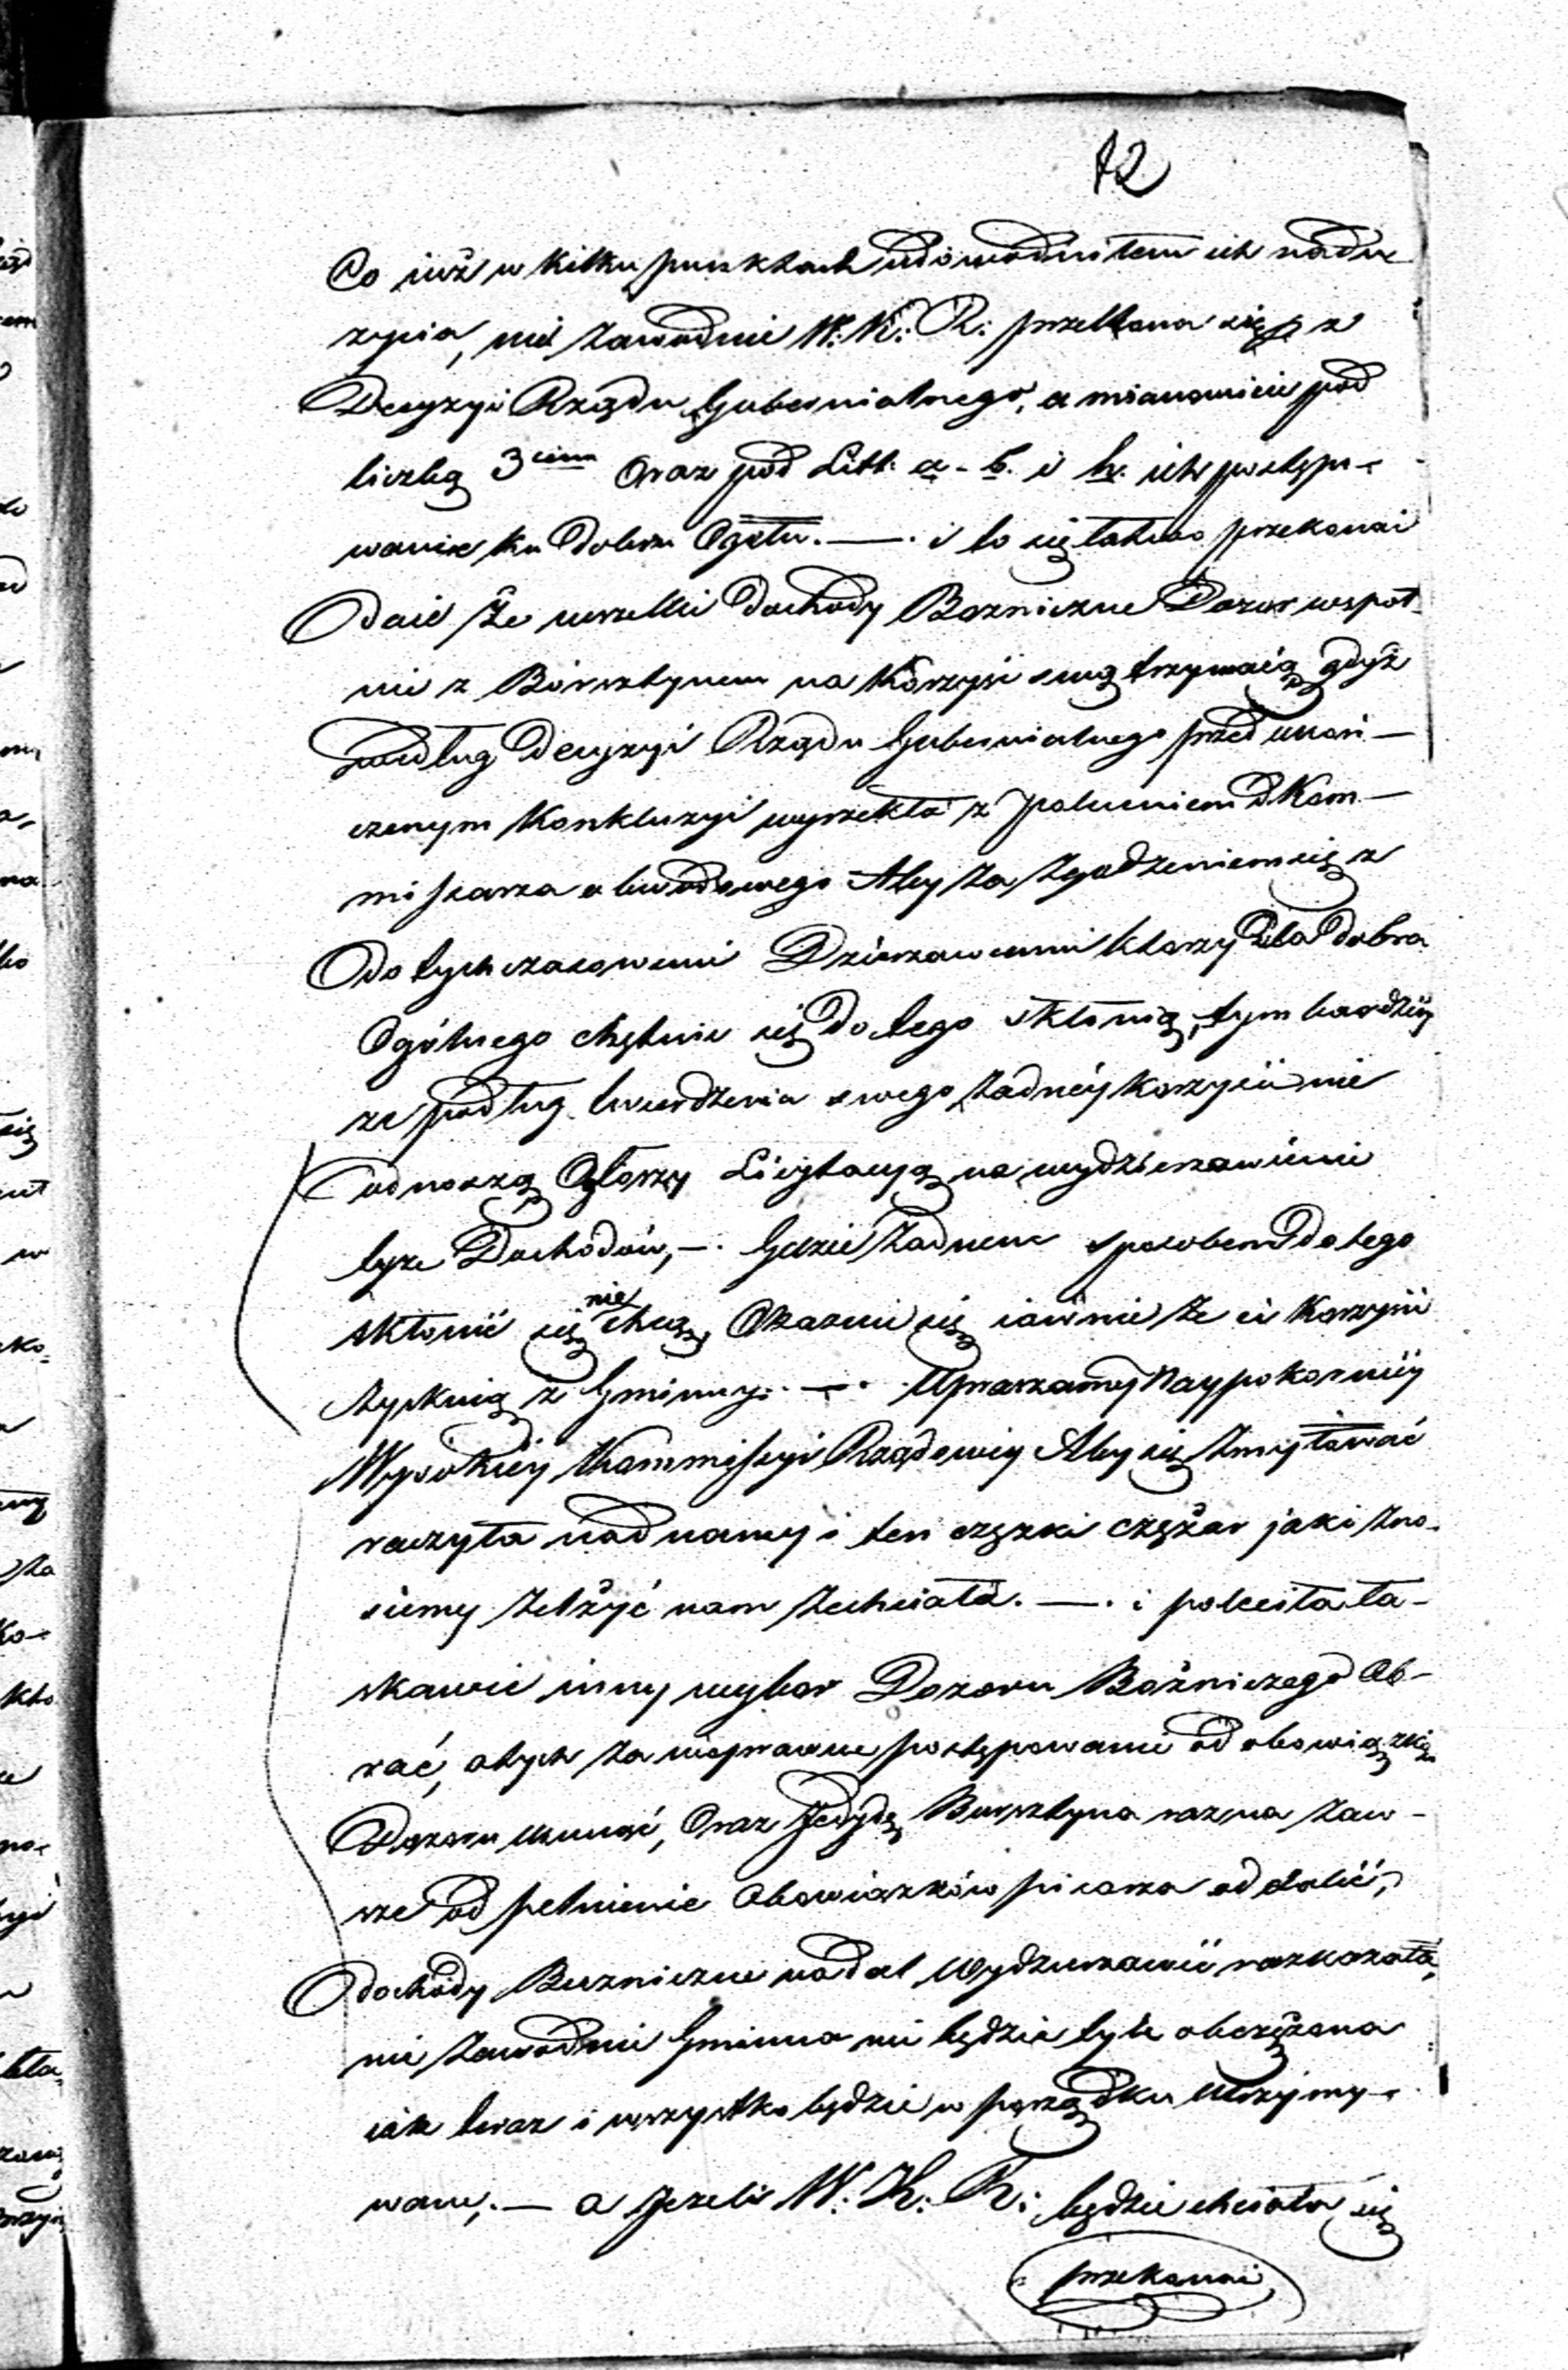 12
Co iuż w kilku punktach udowodniłem ich nadu-
życia, nie zawodnie W: K: R: przekona się z
Decyzyi Rządu Gubernialnego, a mianowicie pod
liczbą 3cim Oraz pod Litt. a - b. i h. ich postępo-
wanie ku dobru Ogółu. —. i to się łatwo przekonai
daie że wszelki dochody Boznicze Dozor wspol-
nie z Borsztynem na Korzyść swą trzymaią gdyż
podług Decyzyi Rządu Gubernialnego przed ukoń-
czenym Konkluzyi wyrzekła z poleceniem Kom-
missarza obwodowego Aby za zgodzeniem się z
dotychczasowemi Dzierzawcami ktorzy dla dobra
Ogólnego chętnie się do tego skłonią, tym bardziey
ze podług twierdzenia swego żadnéy korzyści nie
odnoszą Ogłorzy Licytacyą na wydzierzawienie
tyze Dochodów, —. Gdzie żadnem sposobem do tego
skłonić się nie chcą, Okazuie się iawnie że ci Korzyści
zyskuią z Gminny. —. Upraszamy Naypokorniey
Wysokiey Kommissyi Rządowey Aby się zmyłować
raczyła nad namy i ten częzki ciężar jaki zno-
siemy zelżyć nam zechciała. —. i poleciła ła-
skawie inny wybor Dozoru Bożniczego Ob-
rać, a tych za nieprawne postępowanie od obowiązku
Dozoru usunąć, Oraz Jedydę Bursztyna raz na zaw-
sze od pełnienie Obowiązków pisarza oddalić,
dochody Buznicze nadal wydzierzawić rozkazała,
nie zawodnie Gminna nie będzie tyle obciężona
iak teraz i wszystko będzie w porządku utrzymy-
wane, — a Jezeli W: K: R: będzie chciała się
przekonai